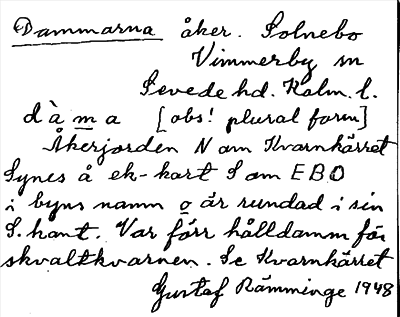 Dammarna åker. Solnebo
Vimmerby sn
Sevede hd. Kalm. l.
dàma [obs! plural form]
Åkerjorden N om Kvarnkärret
Synes å ek-kart S om EBO
i byns namn o är rundad i sin
S. kant. Var förr hålldamm för
skvaltkvarnen. Se Kvarnkärret
Gustaf Rämminge 1948